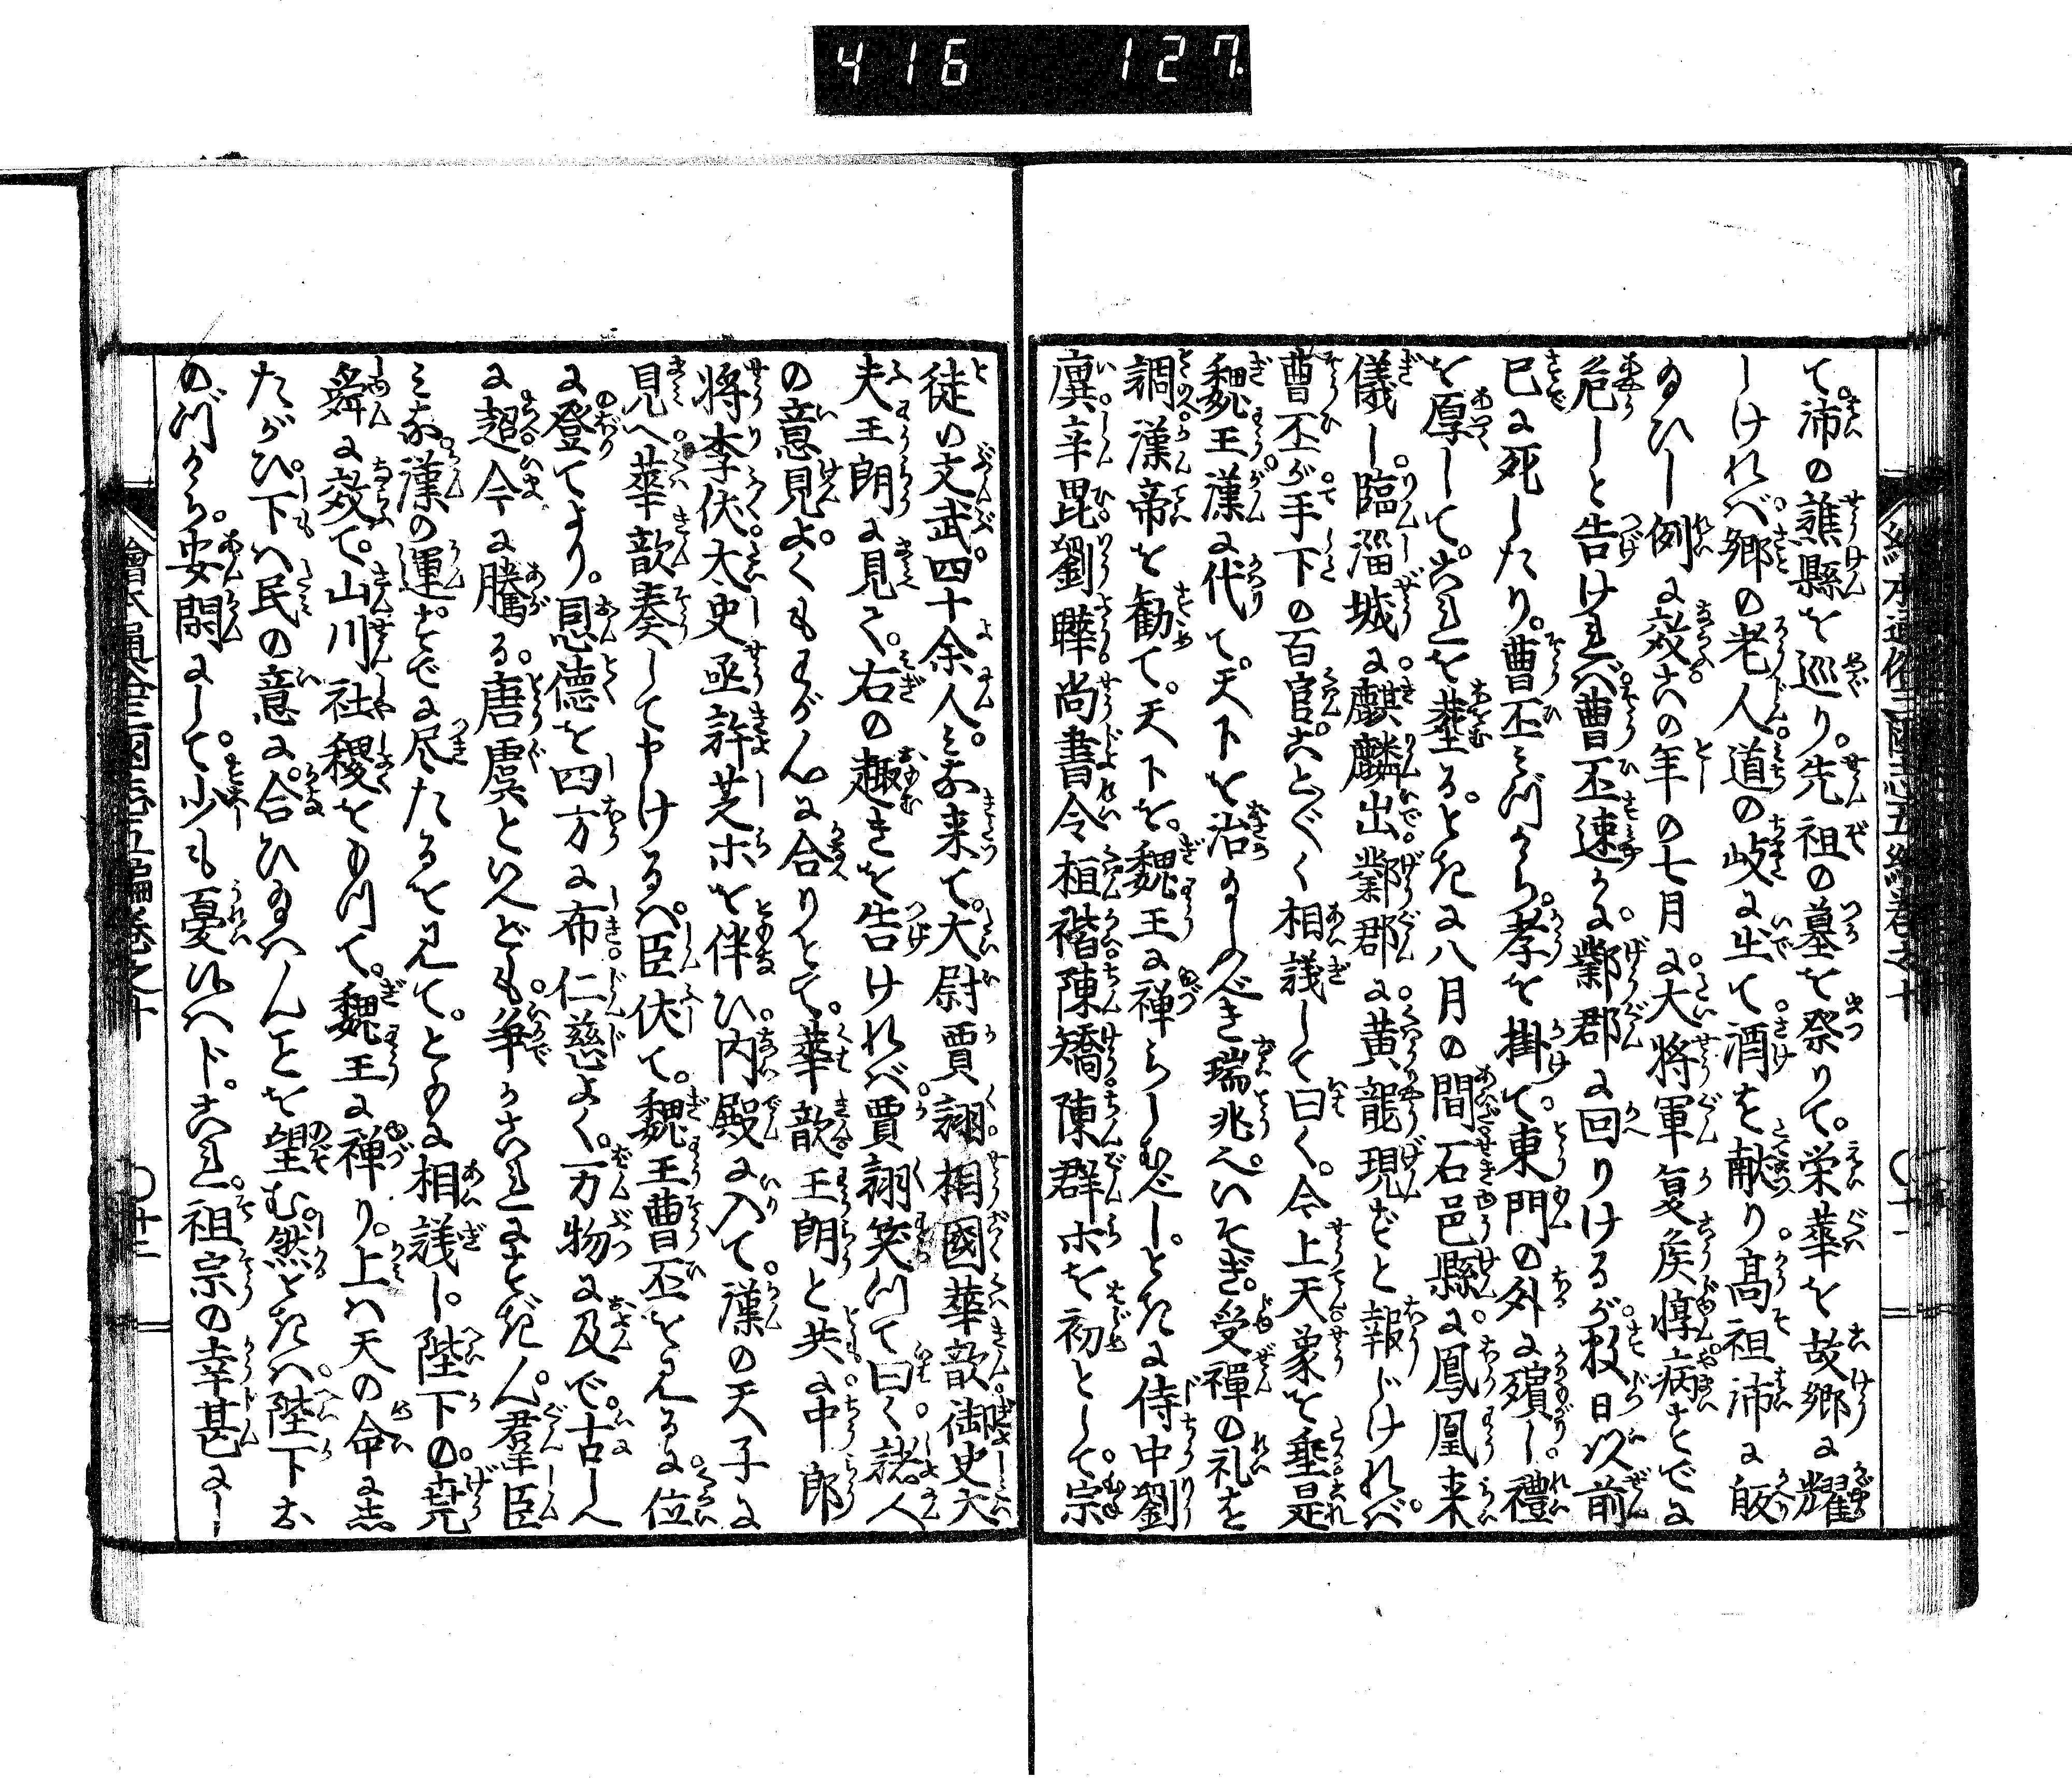 416 127
て。沛の譙縣を巡り。先祖の墓を祭りて。栄華を故郷に耀
しければ。郷の老人。道の岐に出て。酒を献り。高祖沛に皈
ゐひし例に效。その年の七月に。大將軍夏侯惇。病すでに
危しと告ければ。曹丕速かに。鄴郡に回りけるが。數日以前
已に死したり。曹丕みづから。孝を掛て。東門の外に殯し。禮
を厚して。これを葬る。ときに八月の間。石邑縣に。鳳凰来
儀し。臨淄城に。麒麟出。鄴郡に。黄龍現ずと報じければ。
曹丕が手下の百官。ことごとく相議して曰く。今上天象を垂是
魏王。漢に代て。天下を治むべき瑞兆也。いそぎ。受禪の礼を
調漢帝を勧て。天下を。魏王に禅らしむべし。ときに侍中劉
廙。辛毘。劉曄。尚書令桓楷。陳矯。陳群ホを初として。宗
徒の文武。四十余人。みな来て。大尉賈詡。相國華歆。御史大
夫王朗に見て。右の趣きを告ければ。賈詡笑て曰く。諸人
の意見。よくもわがんに合りとて。華歆。王朗と共に。中郎
將李伏。大史丞許芝ホを伴ひ。内殿に入て。漢の天子に
見へ。華歆奏して申けるハ。臣伏て。魏王曹丕を見るに。位
に登てより。恩徳を四方に布。仁慈よく。万物に及で。古しへ
に超。今に騰る。唐虞といへども。争かこれにすぎん。群臣
みな。漢の運。すでに尽たるを見て。ともに相議し。陛下の。尭
舜に效て。山川社稷をもつて。魏王に禅り。上ハ天の命に志
たがひ。下ハ民の意に。合ひ給ハんことを望む。然るときハ。陛下お
のづから。安閑にして。少も憂ひハじ。これ。祖宗の幸甚にし
繪本通俗三國志五編巻之十 〇十二